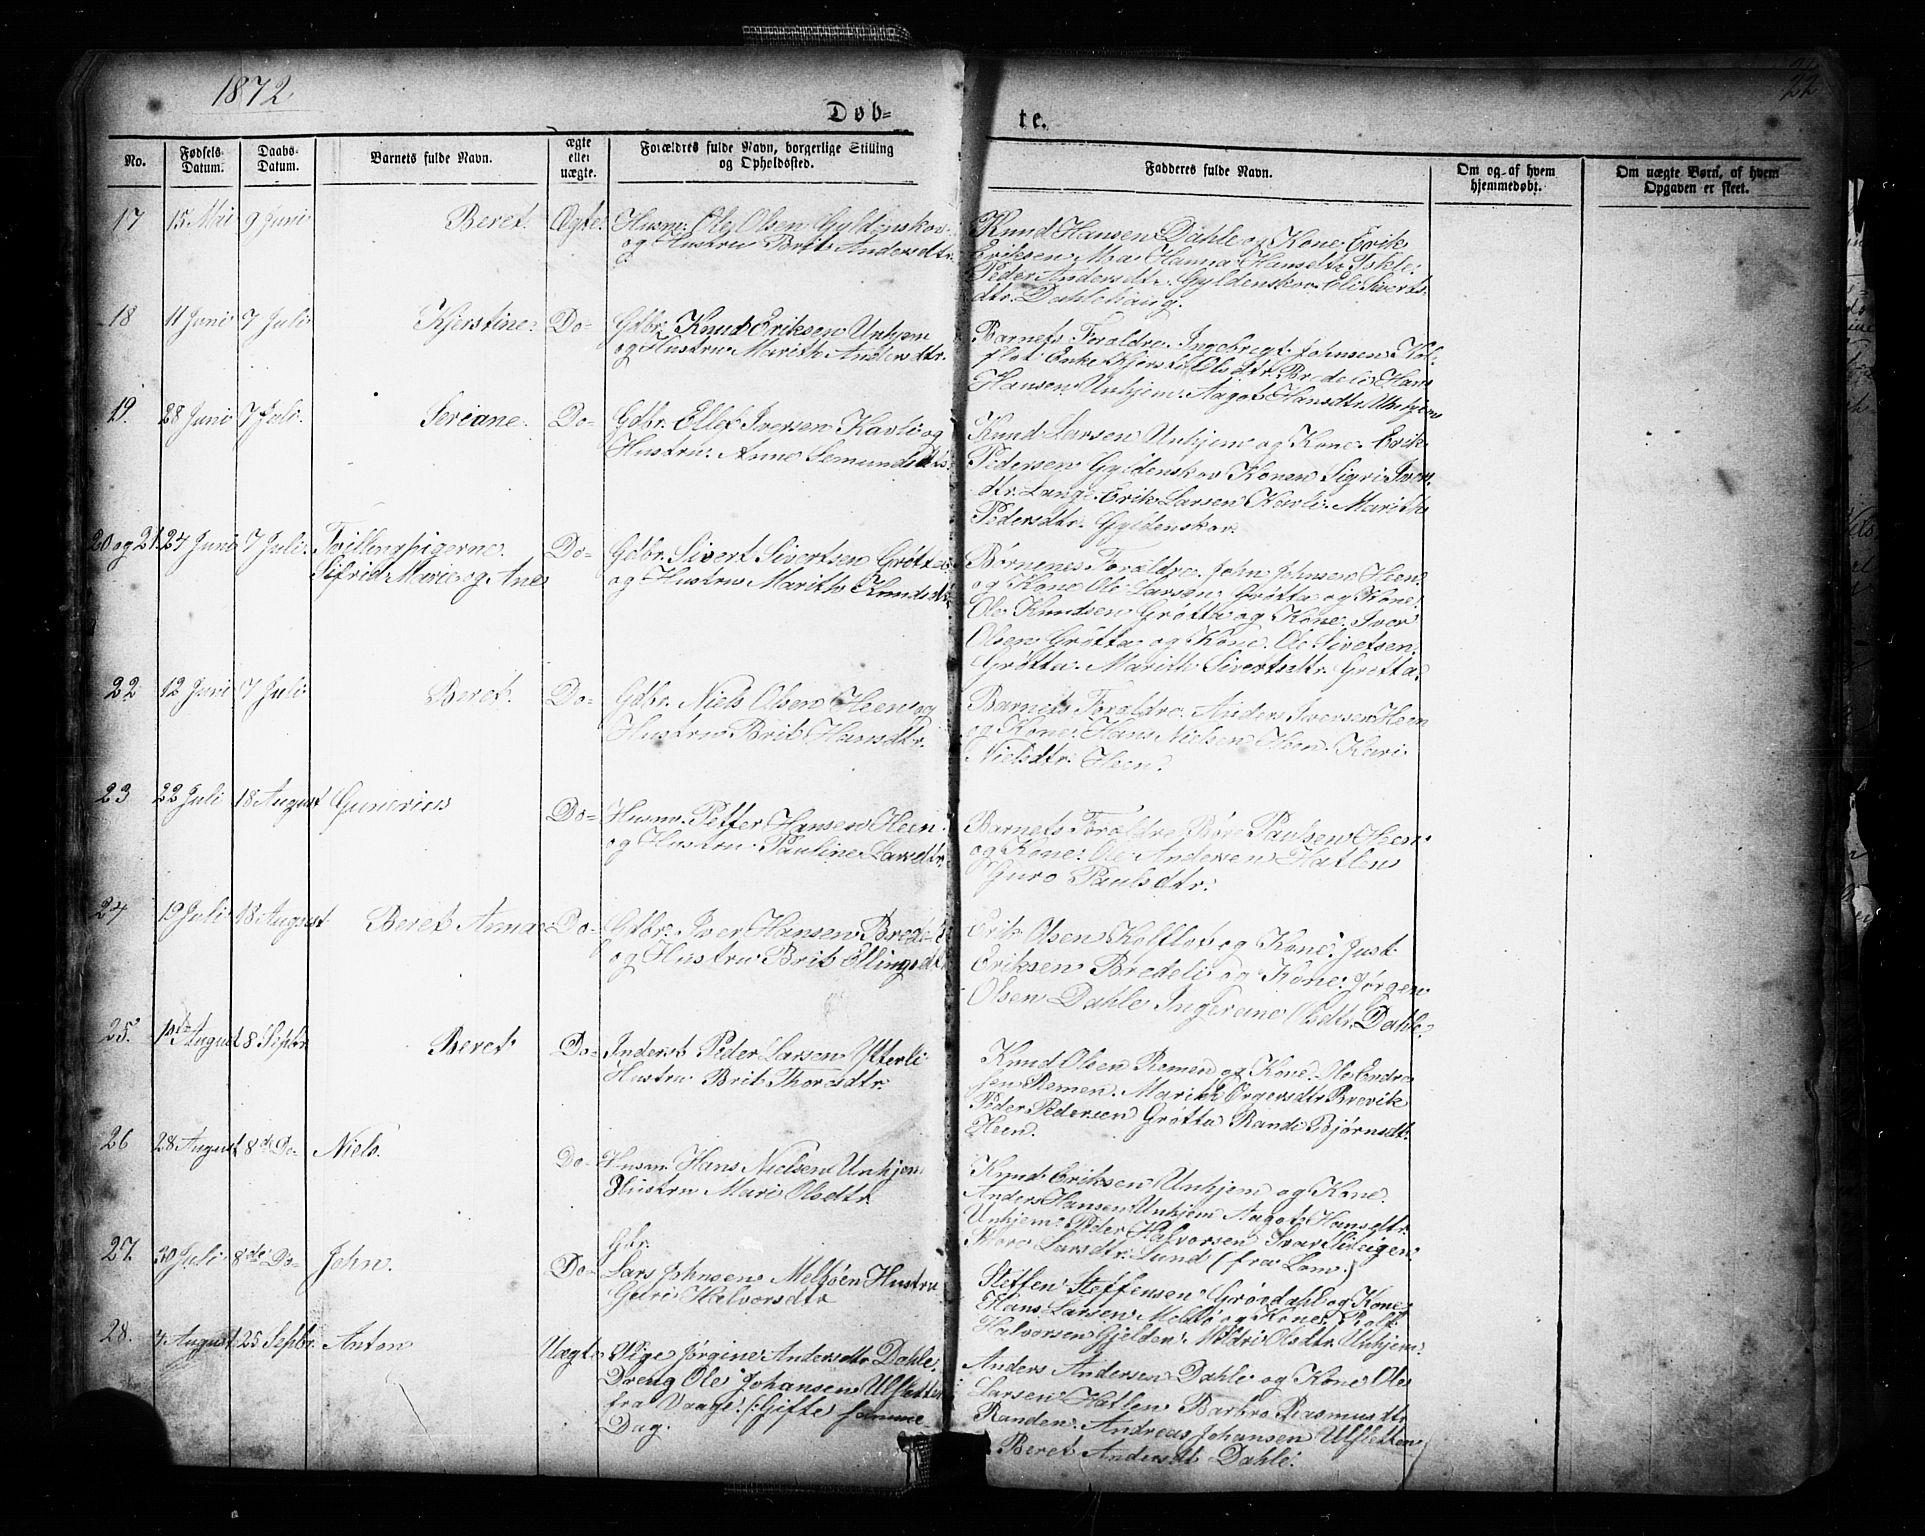 1872
22
Døb-
te.
No.
Fødsels-Datum.
Daabs-Datum.
Barnets fulde Navn.
ægte eller uægte.
Forældres fulde Navn, borgerlige Stilling og Opholdssted.
Faddernes fulde Navn.
Om og af hvem hjemmedøbt.
Om uægte Børn, af hvem Opgaven er skeet.
17 15 Mai 9 Juni Beret. Ægte. Husm: Ole Olsen Gyldenskov
og Hustru Brit Andersdtr.
Knud Hansen Dahle og Kone. Erik
Eriksen Hanna Hansdtr
Peder Andersdtr. Gyldenskov Eli Siverts
dtr. Dahlehaug.
18 11 Juni 7 Juli. Kjerstine. Do- Gdbr. Knud Eriksen Unhjem
og Hustru Marith Andersdtr.
Barnets Foraldre. Ingebrigt Johnsen Kol
flot Enke Kjersti Ols dtr. Bredeli Hans
Hansen Unhjem. Aagot Hansdtr. Unhjem
19. 28 Juni 7 Juli. Seriane. Do- Gdbr. Ellef Iversen Kavli og
Hustru: Anne Semundsdtr.
Knud Larsen Unhjem og Kone. Erik
Pedersen Gyldenskov Konen Sigri Iver
dtr. Lang. Erik Larsen Kavli. Marith
Pedersdtr. Gyldenskov.
20 og 21. 24 Juni 7 Juli. Tvillingpigerne.
Sifrid Marie og Ane
Do- Gdbr. Sivert Sivertsen Grøtta
og Hustru Marith Knudsdtr.
Børnenes Forældre. John Johnsen Heen.
og Kone Ole Larsen Grøtta og Kone.
Ole Knudsen Grøtta og Kone. Iver
Olsen Grøtta og Kone. Ole Sivetsen.
Grøtta. Marith Sivertsdtr. Grøtta.
22 12 Juni 7 Juli. Beret. Do- Gdbr. Niels Olsen Heen og
Hustru Brit Hansdtr.
Barnets Foraldre. Anders Iversen Heen
og Kone. Hans Nielsen Heen. Kari
Nielsdtr. Heen.
23 22 Juli 18 August Gunerius Do- Husm. Petter Hansen Heen.
og Hustru Pauline Larsdtr.
Barnets Foraldre Paulsen Heen
og Kone. Ole Andersen Hatlen
Guro Paulsdtr.
24 19 Juli 18 August Beret Anna Do- Gdbr. Iver Hansen Bredeli
og Hustru Brit Ellingsdtr
Erik Olsen Kolflot og Kone. Just
Eriksen Bredeli og Kone. Jørgen
Olsen Dahle Ingeranna Olsdtr. Dahle.
25. 10de August 8 Septbr. Beret Do- Inderst Peder Larsen Ytterli
Hustru Brit Thoresdtr.
Knud Olsen Remen og Kone. Ole Endre
sen Remen. Marith Brevik
Peder Pedersen Grøtta Randi Bjørnsdtr.
Heen.
26 28 August 8de Do- Niels. Do- Husm. Hans Nielsen Unhjem
Hustru Mari Olsdtr.
Knud Eriksen Unhjem og Kone.
Anders Hansen Unhjem Aagot Hansdtr.
Unhjem. Peder Halvorsen
Larsdtr. Lund (fra Lom.)
27. 30 Juli 8de Do- John. Do- Gbr.
Lars Johnsen Melsøen Hustru
Halvorsdtr
Steffen Steffensen Grøvdahl og Kone
Hans Larsen og Kone. Rolf
Halvorsen Gjelden. Mildri Olsdtr. Unhjem.
28. 4 August 25 Septbr. Anton Uægte Pige Jørgine Andersdtr. Dahle.
Dreng Ole Johansen Ulfsetten
fra Vaage. /:Gifte samme
Dag.
Anders Andersen Dahle og Kone Ole
Larsen Hatlen Barbro Rasmusdtr.
Randen. Andreas Johansen Ulfsetten
Beret Andersdt. Dahle.